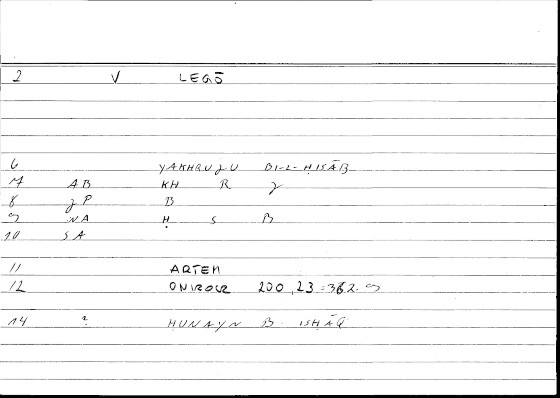 2 V LEGŌ
6 YAKHRUJU BI-L-ḤISĀB
7 AB KH R J
8 JP B
9 NA Ḥ S B
10 SA
11 ARTEM
12 ONIROCR 200,23=362.9
14 ? HUNAYN B. ISHĀQ